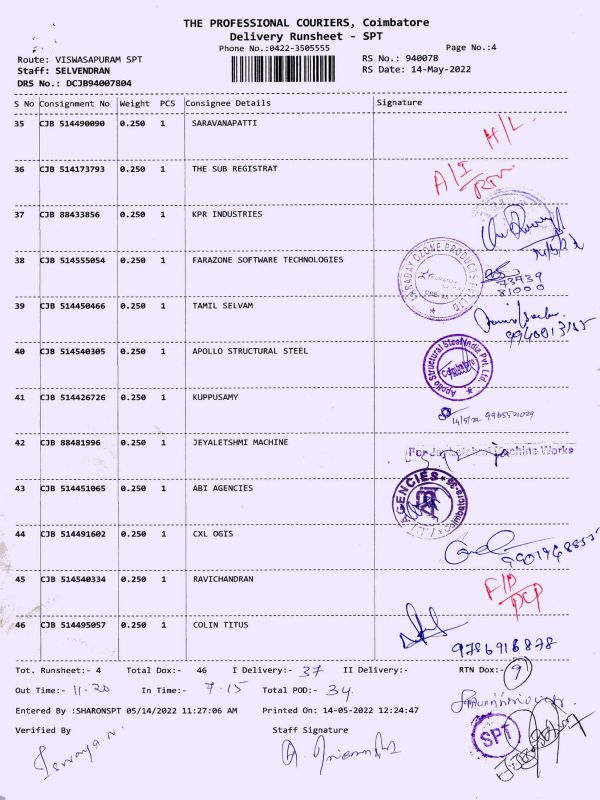 THE PROFESSIONAL COURIERS, Coimbatore
Delivery Runsheet - SPT
Phone No.:0422-3505555
Page No.:4
Route: VISWASAPURAM SPT
RS No.: 940078
Staff: SELVENDRAN
RS Date: 14-May-2022
DRS No.: DCJB94007804
S No Consignment No Weight PCS Consignee Details Signature
35 CJB 514490090 0.250 1 SARAVANAPATTI H/L
36 CJB 514173793 0.250 1 THE SUB REGISTRAT A/I RTN
37 CJB 88433856 0.250 1 KPR INDUSTRIES 14/5/22
38 CJB 514555054 0.250 1 FARAZONE SOFTWARE TECHNOLOGIES
FARADAY OZONE PRODUCTS
73739
81000
39 CJB 514450466 0.250 1 TAMIL SELVAM
40 CJB 514540305 0.250 1 APOLLO STRUCTURAL STEEL
Apollo Structural Steel India Pvt. Ltd.
Coimbatore
41 CJB 514426726 0.250 1 KUPPUSAMY
14/5/22
42 CJB 88481996 0.250 1 JEYALETSHMI MACHINE
Machine Works
43 CJB 514451065 0.250 1 ABI AGENCIES
AGENCIES
Coimbatore-35
44 CJB 514491602 0.250 1 CXL OGIS
45 CJB 514540334 0.250 1 RAVICHANDRAN
46 CJB 514495057 0.250 1 COLIN TITUS
9786916878
Tot. Runsheet:- 4 Total Dox:- 46 I Delivery:- 37 II Delivery:- RTN Dox:- 9
Out Time:- 11-20 In Time:- 7-15 Total POD:- 34
Entered By :SHARONSPT 05/14/2022 11:27:06 AM Printed On: 14-05-2022 12:24:47
Verified By Staff Signature
SPT